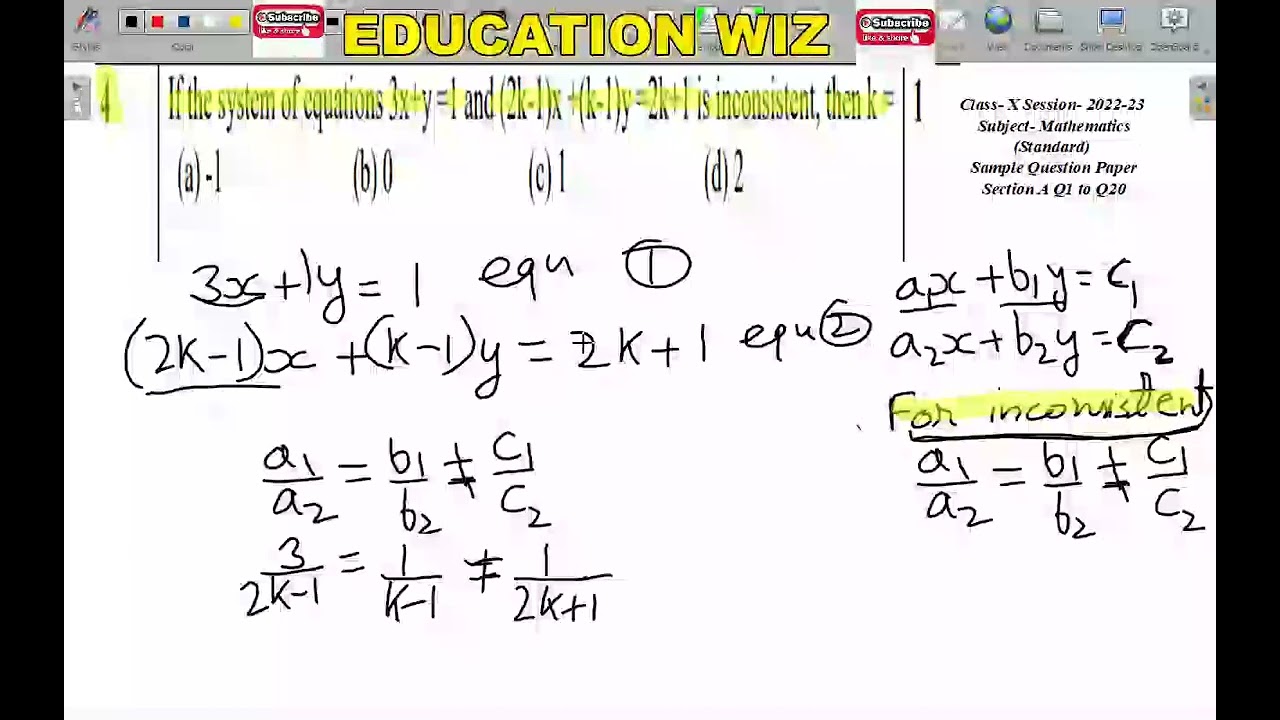 Subscribe
like & share
EDUCATION WIZ
Subscribe
like & share
Documents
Show Desktop
4 If the system of equations 3x+y =1 and (2k-1)x +(k-1)y =2k+1 is inconsistent, then k = 1
(a) -1 (b) 0 (c) 1 (d) 2
Class- X Session- 2022-23
Subject- Mathematics
(Standard)
Sample Question Paper
Section A Q1 to Q20
3x + 1y = 1 equ ①
(2K-1)x + (K-1)y = 2K+1 equ ②
a₁x + b₁y = c₁
a₂x + b₂y = c₂
For inconsistent
a₁/a₂ = b₁/b₂ ≠ c₁/c₂
a₁/a₂ = b₁/b₂ ≠ c₁/c₂
3/2K-1 = 1/K-1 ≠ 1/2K+1